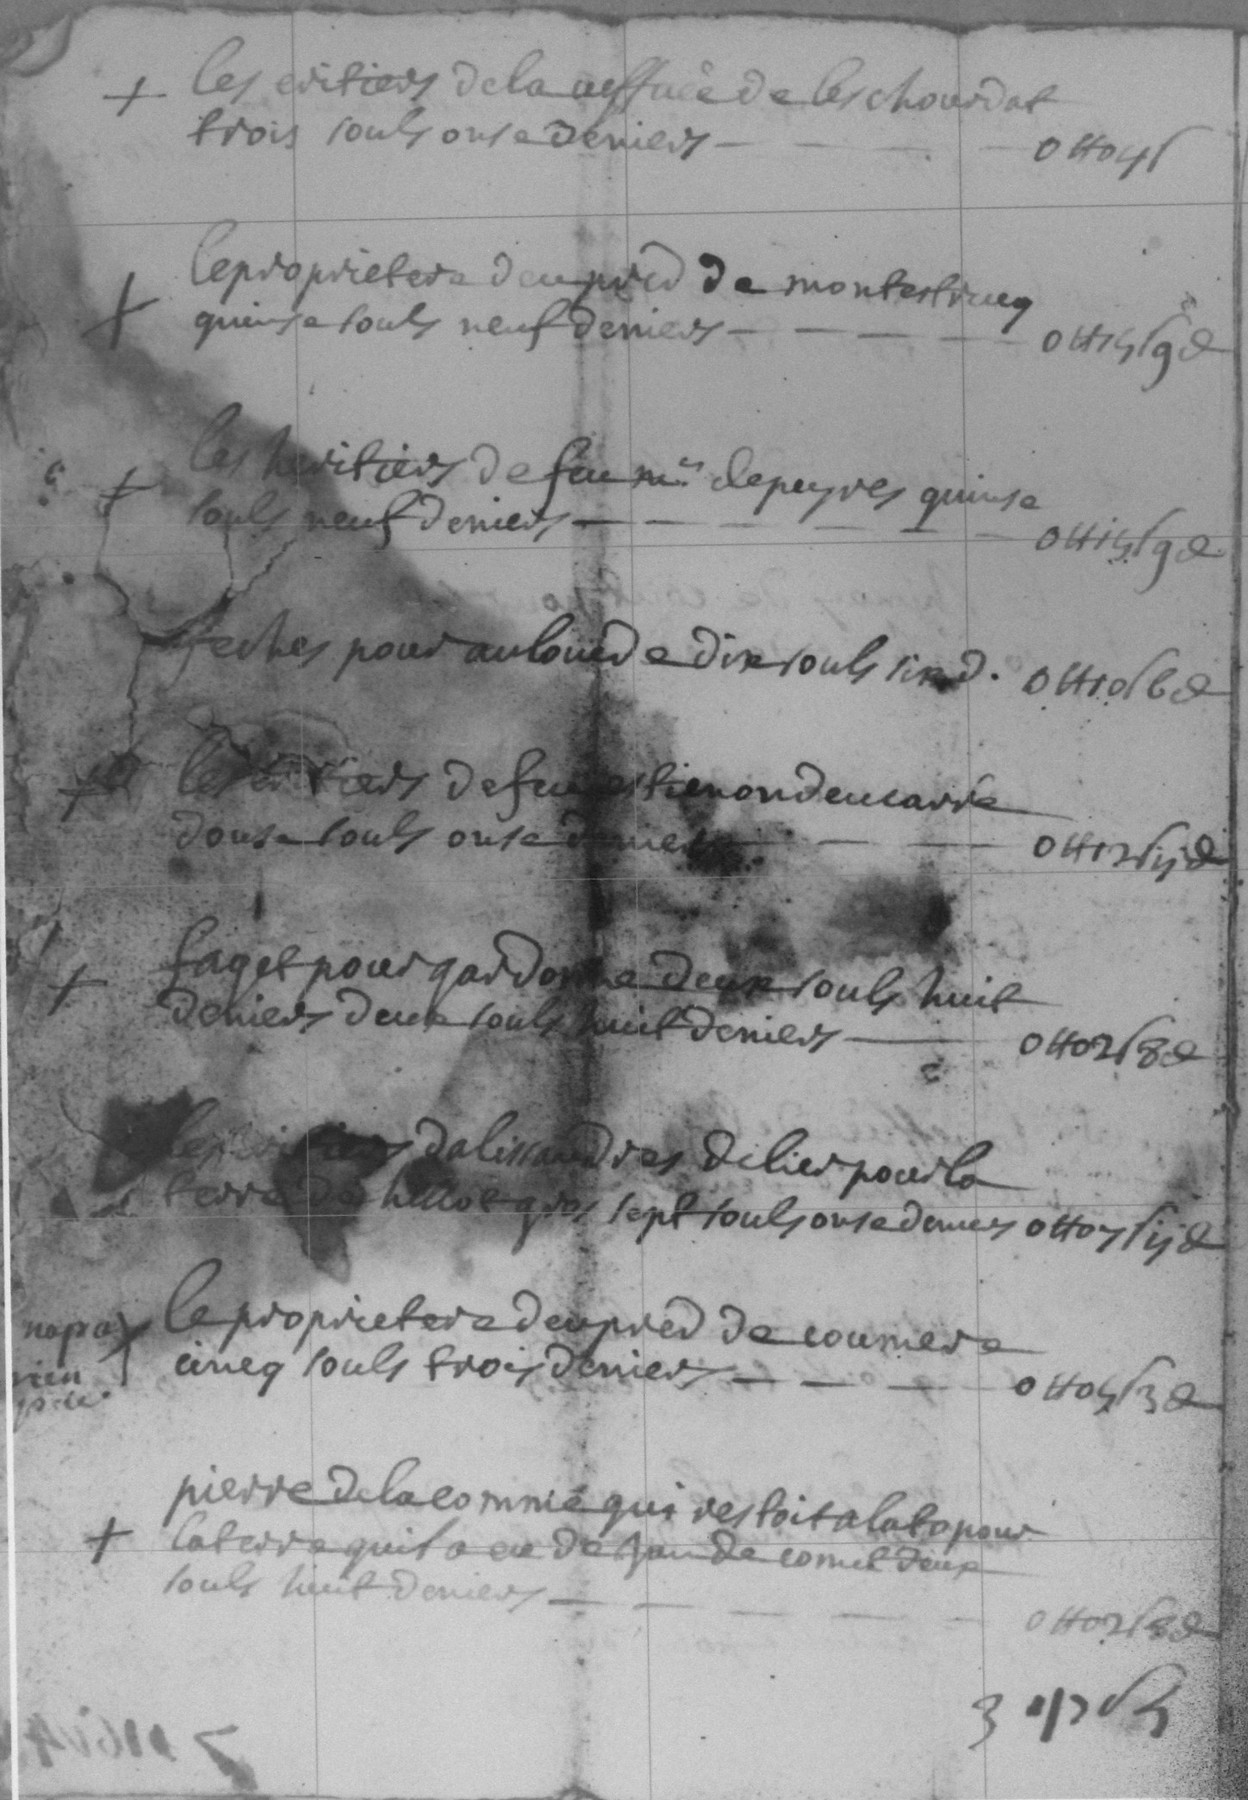 + les eritiers de la veffuée de leschourdat
trois souls onse deniers - - - - 0 ℔ 04 s
+ le proprietere deu pred de montestrucq
quinse souls neuf deniers - - - - 0 ℔ 15 s 9 d
+ les heritiers de feu mr. depeyres quinse
souls neuf deniers - - - - - 0 ℔ 15 s 9 d
feches pour auloue de dix souls six d. 0 ℔ 10 s 6 d
+ les eritiers de feu estienon deucarre
douse souls onse deniers - - - 0 ℔ 12 s 11 d
+ faget pour gardonne deux souls huit
deniers deux souls huit deniers - 0 ℔ 02 s 8 d
les eritiers dalissandres delier pour la
terre de gros sept souls onse deniers 0 ℔ 07 s 11 d
le proprietere deu pred de coumere
cincq souls trois deniers - - - 0 ℔ 05 s 3 d
rien
pierre de lacomme qui restoit alato pour
+ la terre quil a eu de Jean de comet deux
souls huit deniers - - - - 0 ℔ 02 s 8 d